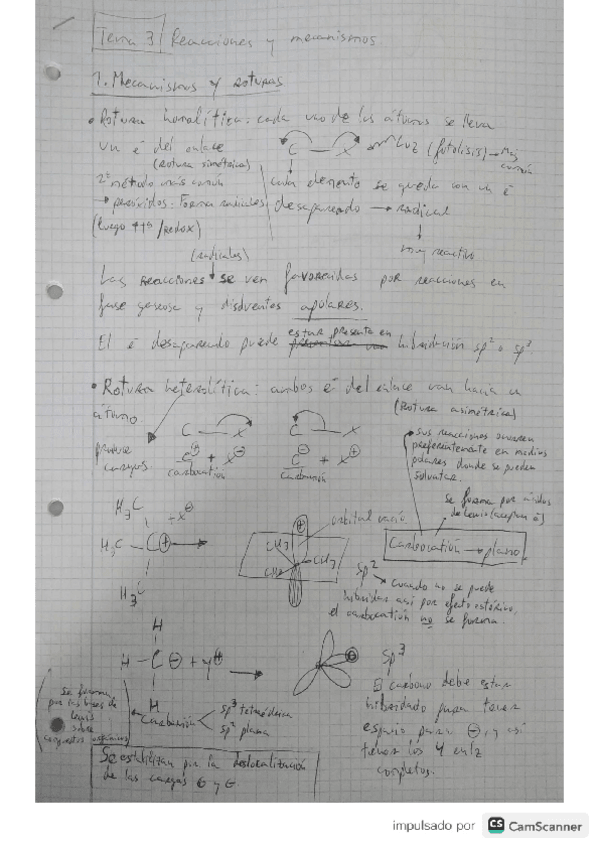 Tema 3 Reacciones y mecanismos
1. Mecanismos y roturas
• Rotura homolítica: cada uno de los átomos se lleva
un é del enlace
(Rotura simétrica)
C — X
Luz (fotolisis) → Más común
2º método más común
→ peróxidos: Forma radicales
(luego ↑↑Tª /redox)
cada elemento se queda con un é
desapareado → radical
↓
muy reactivo
(radicales)
Las reacciones se ven favorecidas por reacciones en
fase gaseosa y disolventes apolares.
El é desapareado puede estar presente en hibridación sp² o sp³
• Rotura heterolítica: ambos é del enlace van hacia un
átomo
(Rotura asimétrica)
produce cargas.
C — X
C⊕ + X⊖
carbocatión
C — X
C⊖ + X⊕
Carbanión
sus reacciones ocurren
preferentemente en medios
polares donde se pueden
solvatar.
se forma por ácidos
de Lewis (aceptan é)
Carbocatión → plano
H₃C
H₃C — C⊕
H₃C
+ X⊖
orbital vacío
CH3
CH3
CH3
sp²
cuando no se puede
hibridar así por efecto estérico,
el carbocatión no se forma.
H
H — C⊖ + Y⊕
H
sp³
El carbono debe estar
hibridado para tener
espacio para ⊖, y así
tener los 4 enlz
completos.
(se forma
por las bases de
Lewis
sobre
compuestos orgánicos)
Carbanión
sp³ tetraédrica
sp² plana
Se estabilizan por la deslocalización
de las cargas ⊕ y ⊖.
impulsado por CS CamScanner